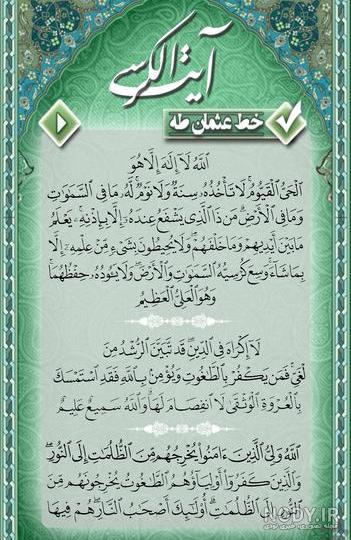 آیت الکرسی
خط عثمان طه
اللَّهُ لَا إِلَٰهَ إِلَّا هُوَ
الْحَيُّ الْقَيُّومُ ۚ لَا تَأْخُذُهُ سِنَةٌ وَلَا نَوْمٌ ۚ لَّهُ مَا فِي السَّمَاوَاتِ
وَمَا فِي الْأَرْضِ ۗ مَن ذَا الَّذِي يَشْفَعُ عِندَهُ إِلَّا بِإِذْنِهِ ۚ يَعْلَمُ
مَا بَيْنَ أَيْدِيهِمْ وَمَا خَلْفَهُمْ ۖ وَلَا يُحِيطُونَ بِشَيْءٍ مِّنْ عِلْمِهِ إِلَّا
بِمَا شَاءَ ۚ وَسِعَ كُرْسِيُّهُ السَّمَاوَاتِ وَالْأَرْضَ ۖ وَلَا يَئُودُهُ حِفْظُهُمَا ۚ
وَهُوَ الْعَلِيُّ الْعَظِيمُ
لَا إِكْرَاهَ فِي الدِّينِ ۖ قَد تَّبَيَّنَ الرُّشْدُ مِنَ
الْغَيِّ ۚ فَمَن يَكْفُرْ بِالطَّاغُوتِ وَيُؤْمِن بِاللَّهِ فَقَدِ اسْتَمْسَكَ
بِالْعُرْوَةِ الْوُثْقَىٰ لَا انفِصَامَ لَهَا ۗ وَاللَّهُ سَمِيعٌ عَلِيمٌ
اللَّهُ وَلِيُّ الَّذِينَ ءَامَنُوا يُخْرِجُهُم مِّنَ الظُّلُمَاتِ إِلَى النُّورِ ۖ
وَالَّذِينَ كَفَرُوا أَوْلِيَاؤُهُمُ الطَّاغُوتُ يُخْرِجُونَهُم مِّنَ
النُّورِ إِلَى الظُّلُمَاتِ ۗ أُولَٰئِكَ أَصْحَابُ النَّارِ ۖ هُمْ فِيهَا
NODY.IR